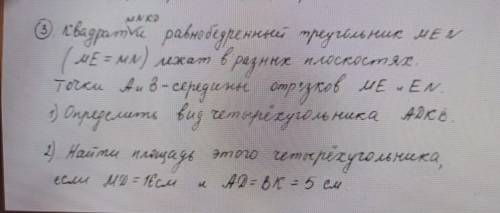 MNKD
③. Квадрат и равнобедренный треугольник MEN
(ME = MN) лежат в разных плоскостях.
Точки A и B - середины отрезков ME и EN.
1) Определить вид четырёхугольника ADKB.
2) Найти площадь этого четырёхугольника,
если MD = 16 см и AD = BK = 5 см